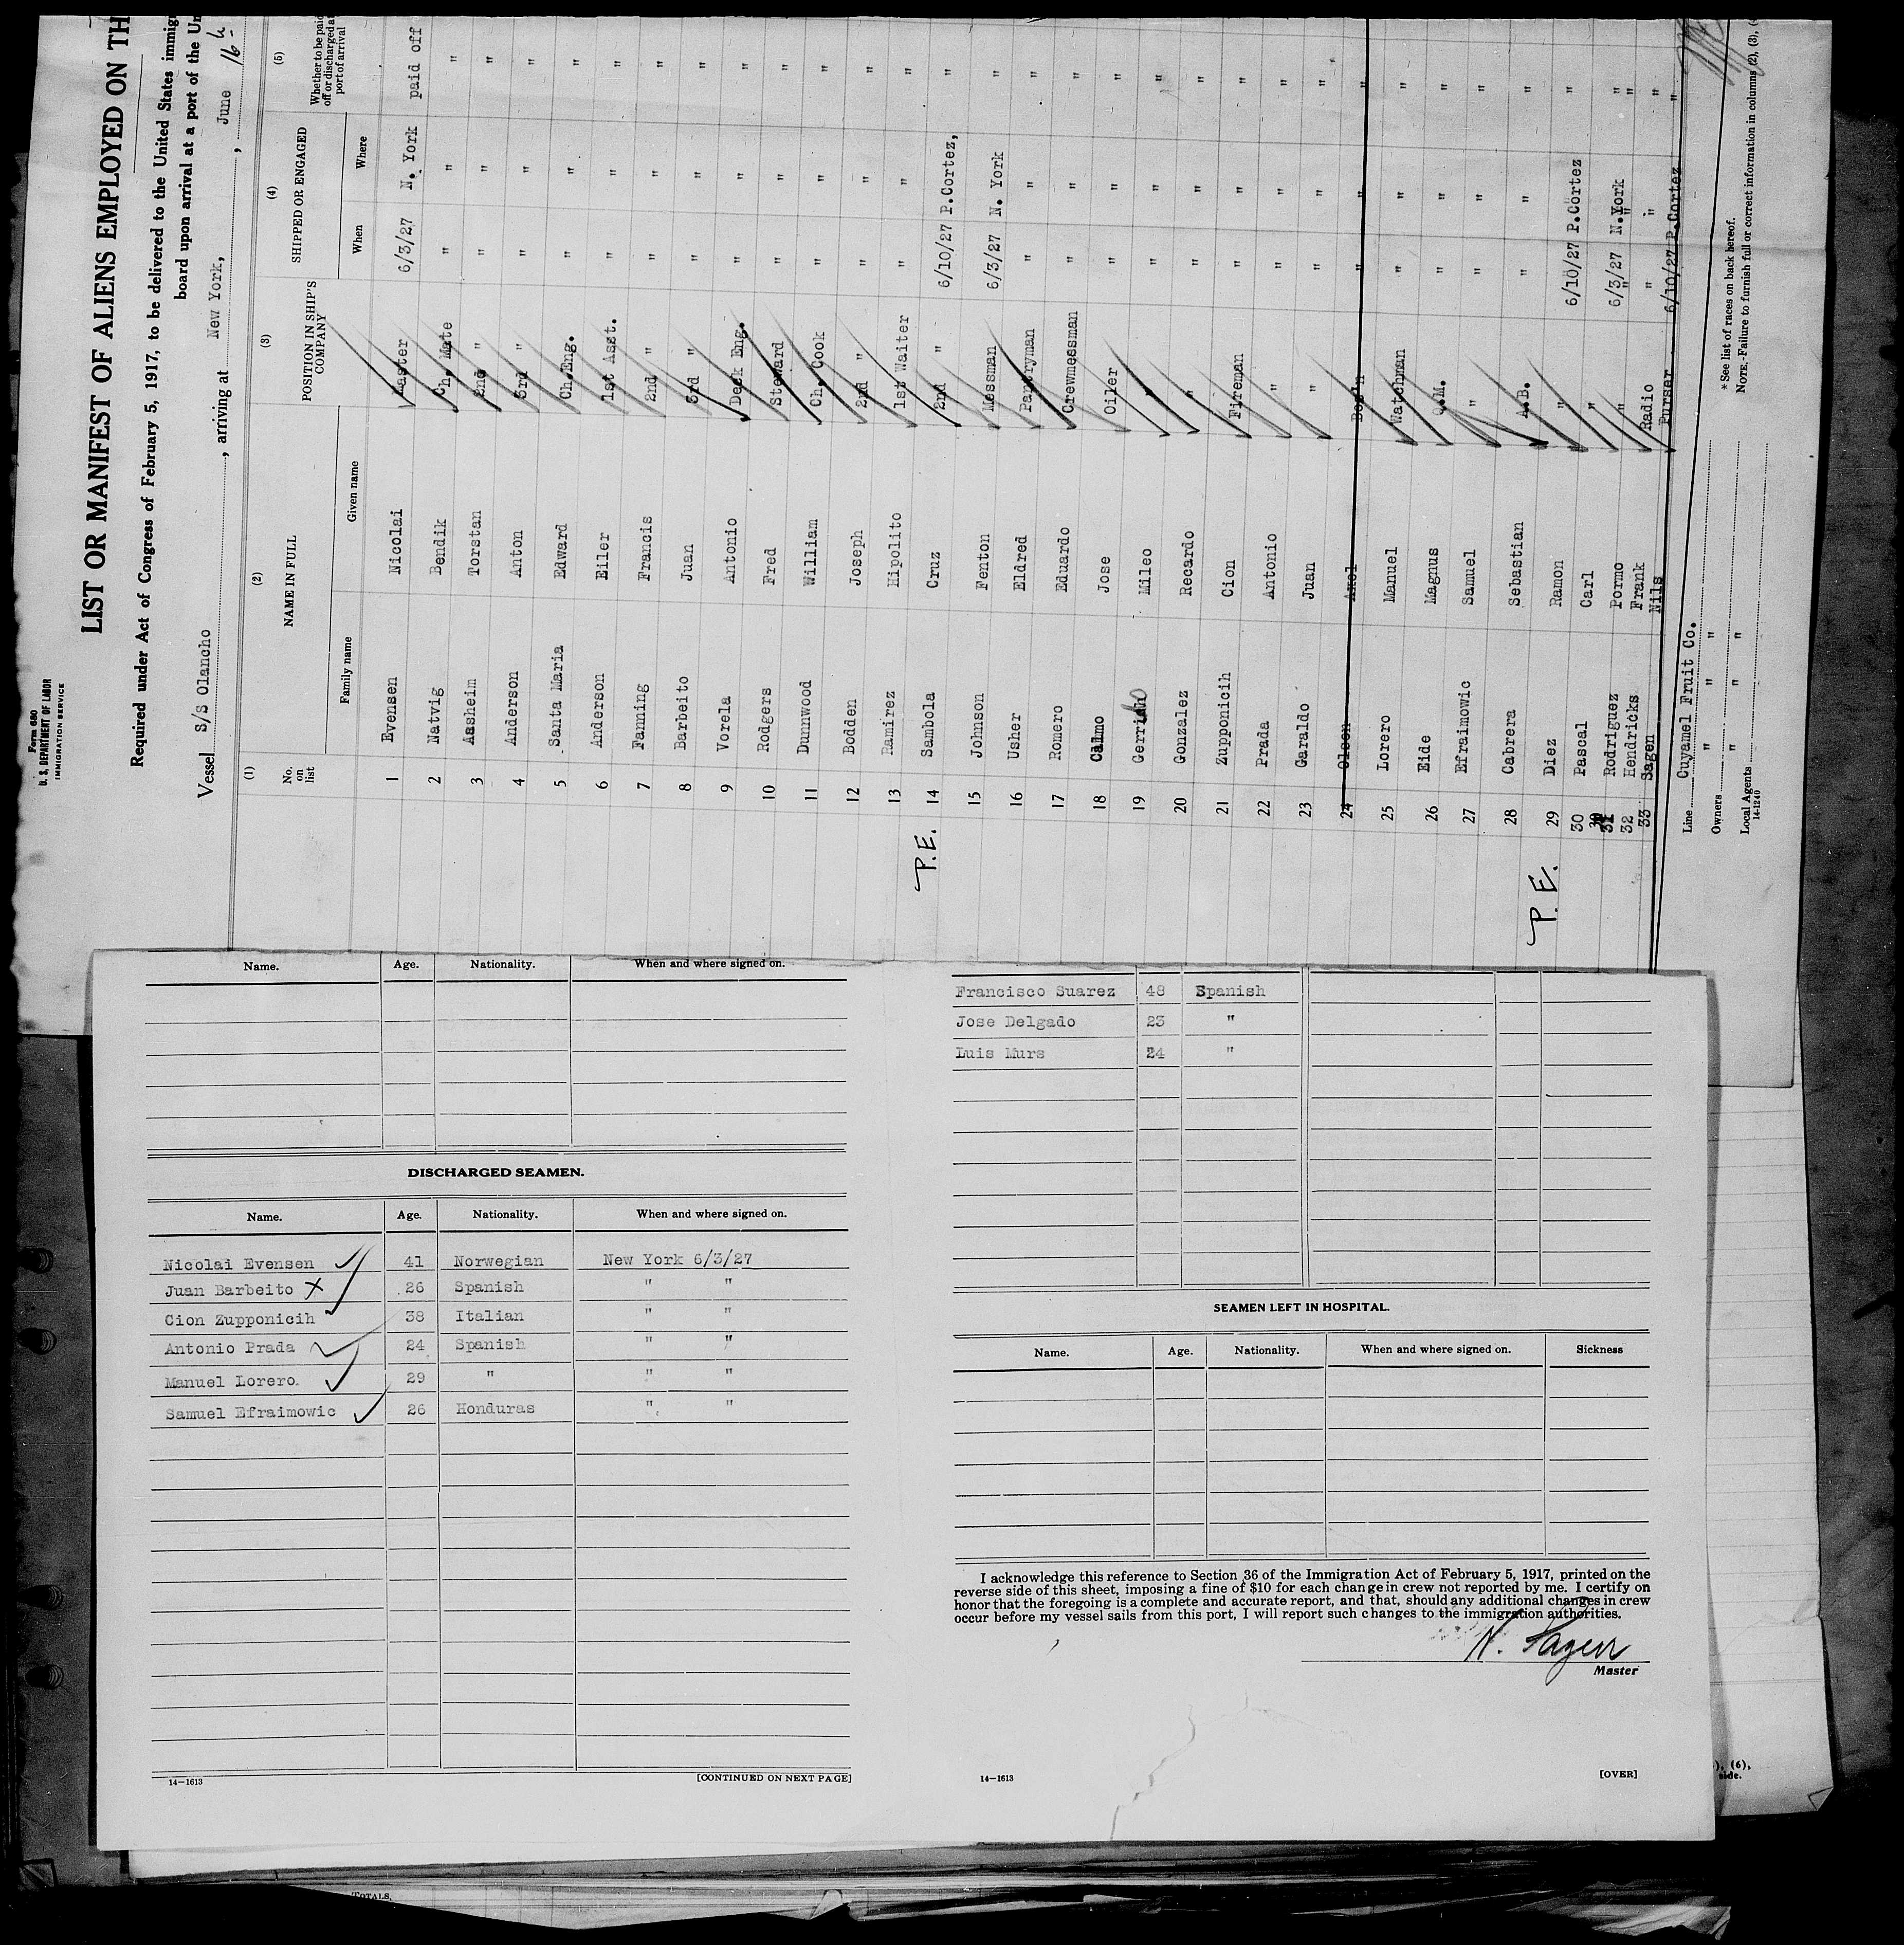 Form 680
U. S. DEPARTMENT OF LABOR
IMMIGRATION SERVICE
LIST OR MANIFEST OF ALIENS EMPLOYED ON TH
Required under Act of Congress of February 5, 1917, to be delivered to the United States immig
board upon arrival at a port of the Un
Vessel S/S Olancho, arriving at New York, June 16th
(1) (2) (3) (4) (5)
No. on list NAME IN FULL POSITION IN SHIP'S COMPANY SHIPPED OR ENGAGED Whether to be paid off or discharged at port of arrival
Family name Given name When Where
1 Evensen Nicolai Master 6/3/27 N. York paid off
2 Natvig Bendik Ch. Mate " " "
3 Aasheim Torstan 2nd " " " "
4 Anderson Anton 3rd " " " "
5 Santa Maria Edward Ch.Eng. " " "
6 Anderson Eiler 1st Asst. " " "
7 Fanning Francis 2nd " " " "
8 Barbeito Juan 3rd " " " "
9 Vorela Antonio Deck Eng. " " "
10 Rodgers Fred Steward " " "
11 Dunnwood William Ch. Cook " " "
12 Bodden Joseph 2nd " " " "
13 Ramirez Hipolito 1st Waiter " " "
P.E. 14 Sambola Cruz 2nd " 6/10/27 P.Cortez, "
15 Johnson Fenton Messman 6/3/27 N. York "
16 Usher Eldred Pantryman " " "
17 Romero Eduardo Crewmessman " " "
18 Calmo Jose Oiler " " "
19 Gerri Mileo " " " "
20 Gonzalez Recardo " " " "
21 Zupponicih Cion Fireman " " "
22 Prada Antonio " " " "
23 Garaldo Juan " " " "
24 Olsen Axel Bos'n " " "
25 Lorero Manuel Watchman " " "
26 Eide Magnus Q.M. " " "
27 Efraimowic Samuel " " " "
28 Cabrera Sebastian A.B. " " "
P.E. 29 Diez Ramon " 6/10/27 P.Cortez "
30 Pascal Carl " 6/3/27 N.York "
31 Rodriguez Pormo " " " "
32 Hendricks Frank Radio " " "
33 Sagen Nils Purser 6/10/27 P.Cortez "
Line Cuyamel Fruit Co.
Owners " " "
Local Agents " " "
14-1240
* See list of races on back hereof.
NOTE.-Failure to furnish full or correct information in columns (2), (3), (
Name. Age. Nationality. When and where signed on.
DISCHARGED SEAMEN.
Name. Age. Nationality. When and where signed on.
Nicolai Evensen 41 Norwegian New York 6/3/27
Juan Barbeito X 26 Spanish " "
Cion Zupponicih 38 Italian " "
Antonio Prada 24 Spanish " "
Manuel Lorero. 29 " " "
Samuel Efraimowic 26 Honduras " "
14—1613
[CONTINUED ON NEXT PAGE]
Francisco Suarez 48 Spanish
Jose Delgado 23 "
Luis Murs 24 "
SEAMEN LEFT IN HOSPITAL.
Name. Age. Nationality. When and where signed on. Sickness
I acknowledge this reference to Section 36 of the Immigration Act of February 5, 1917, printed on the
reverse side of this sheet, imposing a fine of $10 for each change in crew not reported by me. I certify on
honor that the foregoing is a complete and accurate report, and that, should any additional changes in crew
occur before my vessel sails from this port, I will report such changes to the immigration authorities.
N. Sagen
Master
14—1613
[OVER]
), (6),
side.
TOTALS.